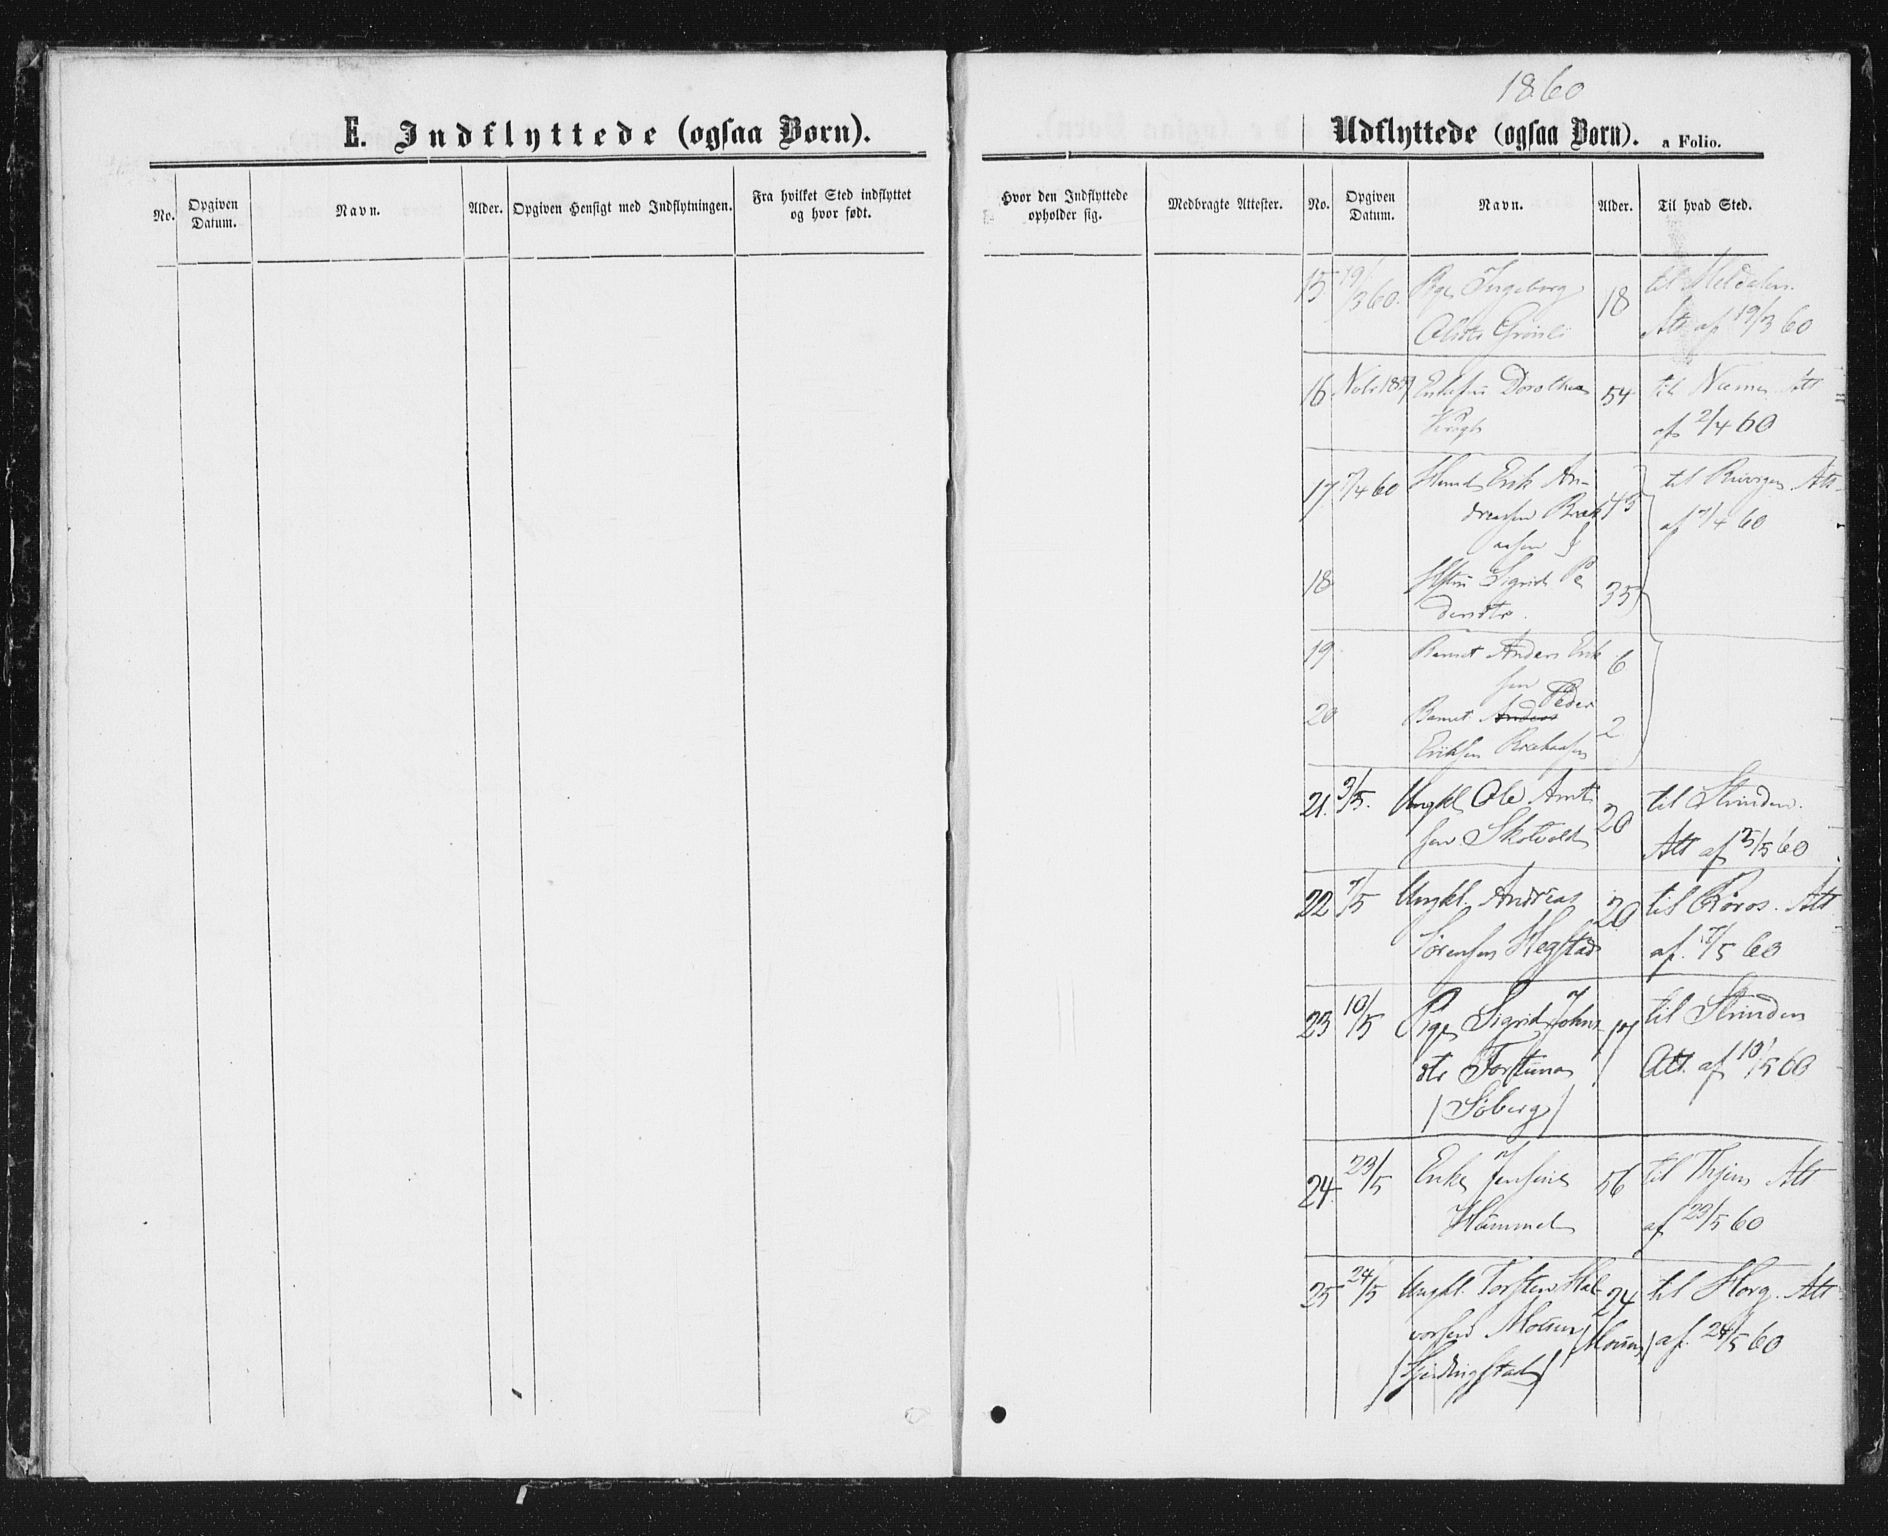 1860
E. Indflyttede (ogsaa Børn).
Udflyttede (ogsaa Børn). a Folio.
No. Opgiven Datum. Navn. Alder. Opgiven Hensigt med Indflytningen. Fra hvilket Sted indflyttet og hvor født.
Hvor den Indflyttede opholder sig. Medbragte Attester. No. Opgiven Datum. Navn. Alder. Til hvad Sted.
15 19/3 60. Pge Ingeborg 18 til Meldalen.
Olsdtr Grønli Att. af 19/3 60
16 Dorothea 54 til Att
Krogh af 2/4 60
17 7/4 60 Erik An- 43 til Att
dreasen af 7/4 60
aasen
18 Sigrid Pe 35
dersdtr.
19 Barnet Anders Erik 6
sen
Peder
20 Barnet Anders 2
Eriksen
21. 3/5. Ungkl Ole Arnt 20 til Strinden.
sen Skotvold Att af 3/5 60
22 7/5 Ungkl. Andreas 20 til Røros. Att
Sørensen Hegstad af. 7/5 60
23 10/5 Pige Sigrid Johns 17 til Strinden
dtr Fortuna Att. af 10/5 60
(Søberg)
24. 23/5 Enke Jensine 56 til Att
Hammel af 23/5 60
25 24/5 Ungkl. Torsten Hal- 24 til Horg. Att
vorsen Moum (Moum) af. 24/5 60